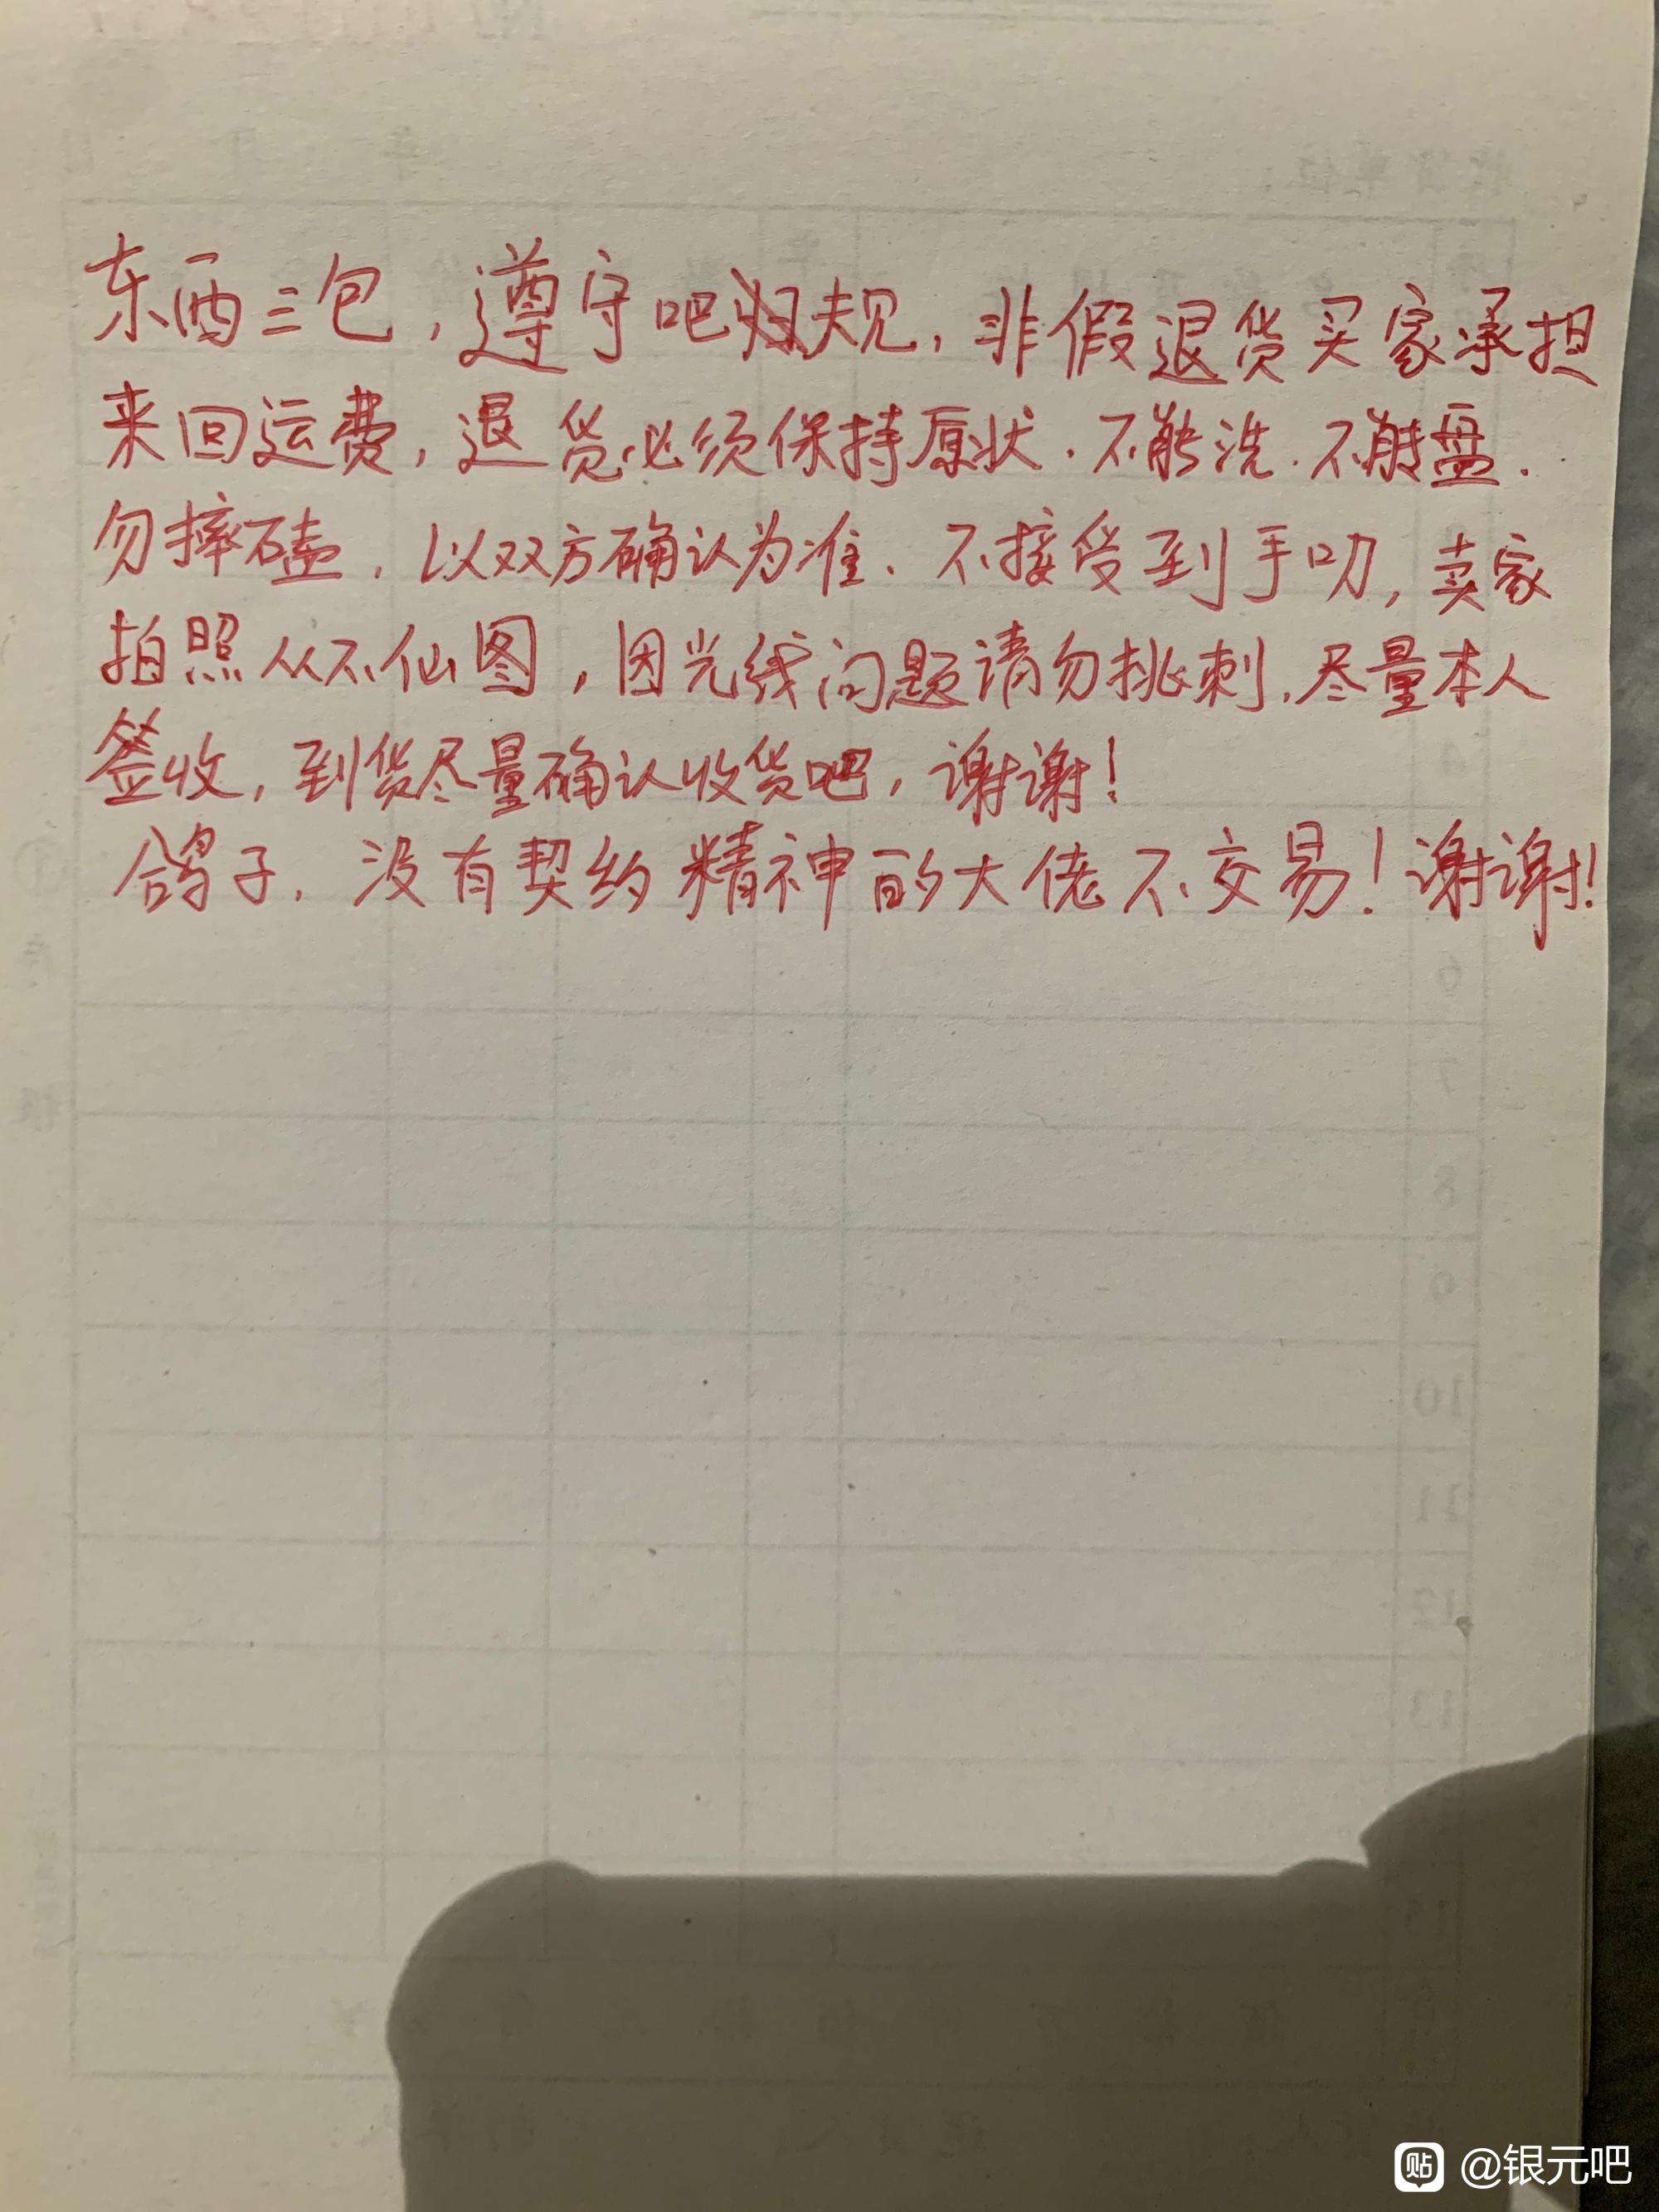 东西三包，遵守吧规，非假退货买家承担
来回运费，退货必须保持原状．不能洗．不能盘．
勿摔磕．以双方确认为准、不接受到手叨，卖家
拍照从不仙图，因光线问题请勿挑刺．尽量本人
签收，到货尽量确认收货吧，谢谢！
鸽子．没有契约精神的大佬不交易！谢谢！
6
7
8
9
10
11
12
13
贴 @银元吧